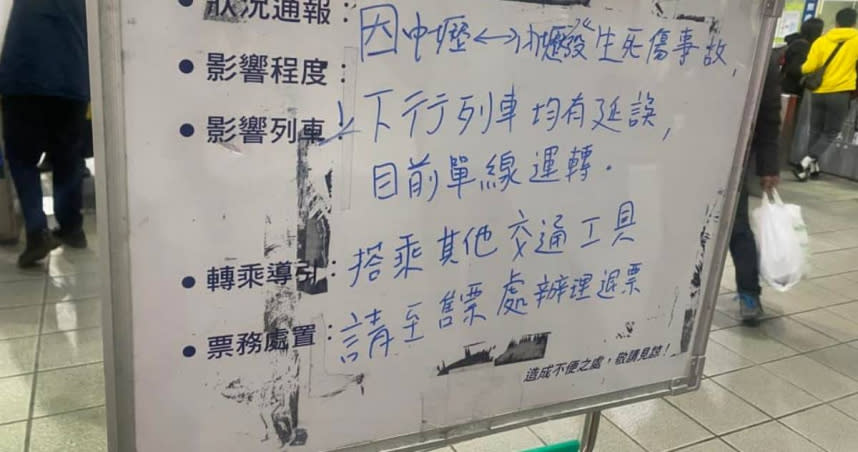 • 狀況通報：因中壢↔內壢發生死傷事故,
• 影響程度：
• 影響列車：下行列車均有延誤,
目前單線運轉.
• 轉乘導引：搭乘其他交通工具
• 票務處置：請至售票處辦理退票
造成不便之處，敬請見諒！